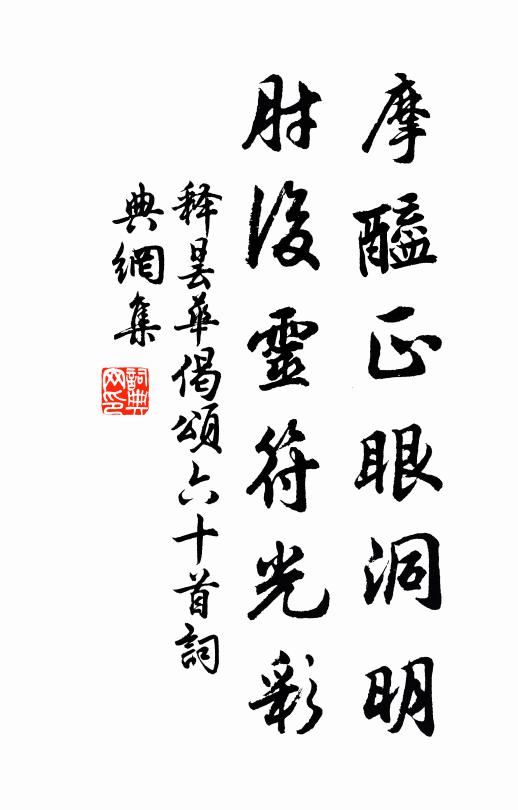 摩醯正眼洞明
肘後靈符光彩
释曇華偈頌六十首詞
典網集
詞典網印